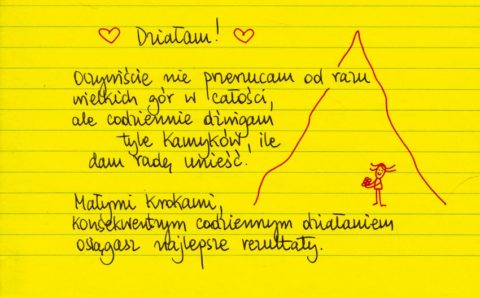 ♡ Działam! ♡
Oczywiście nie przerzucam od razu
wielkich gór w całości,
ale codziennie dźwigam
tyle kamyków, ile
dam radę unieść.
Małymi krokami,
konsekwentnym codziennym działaniem
osiągasz najlepsze rezultaty.